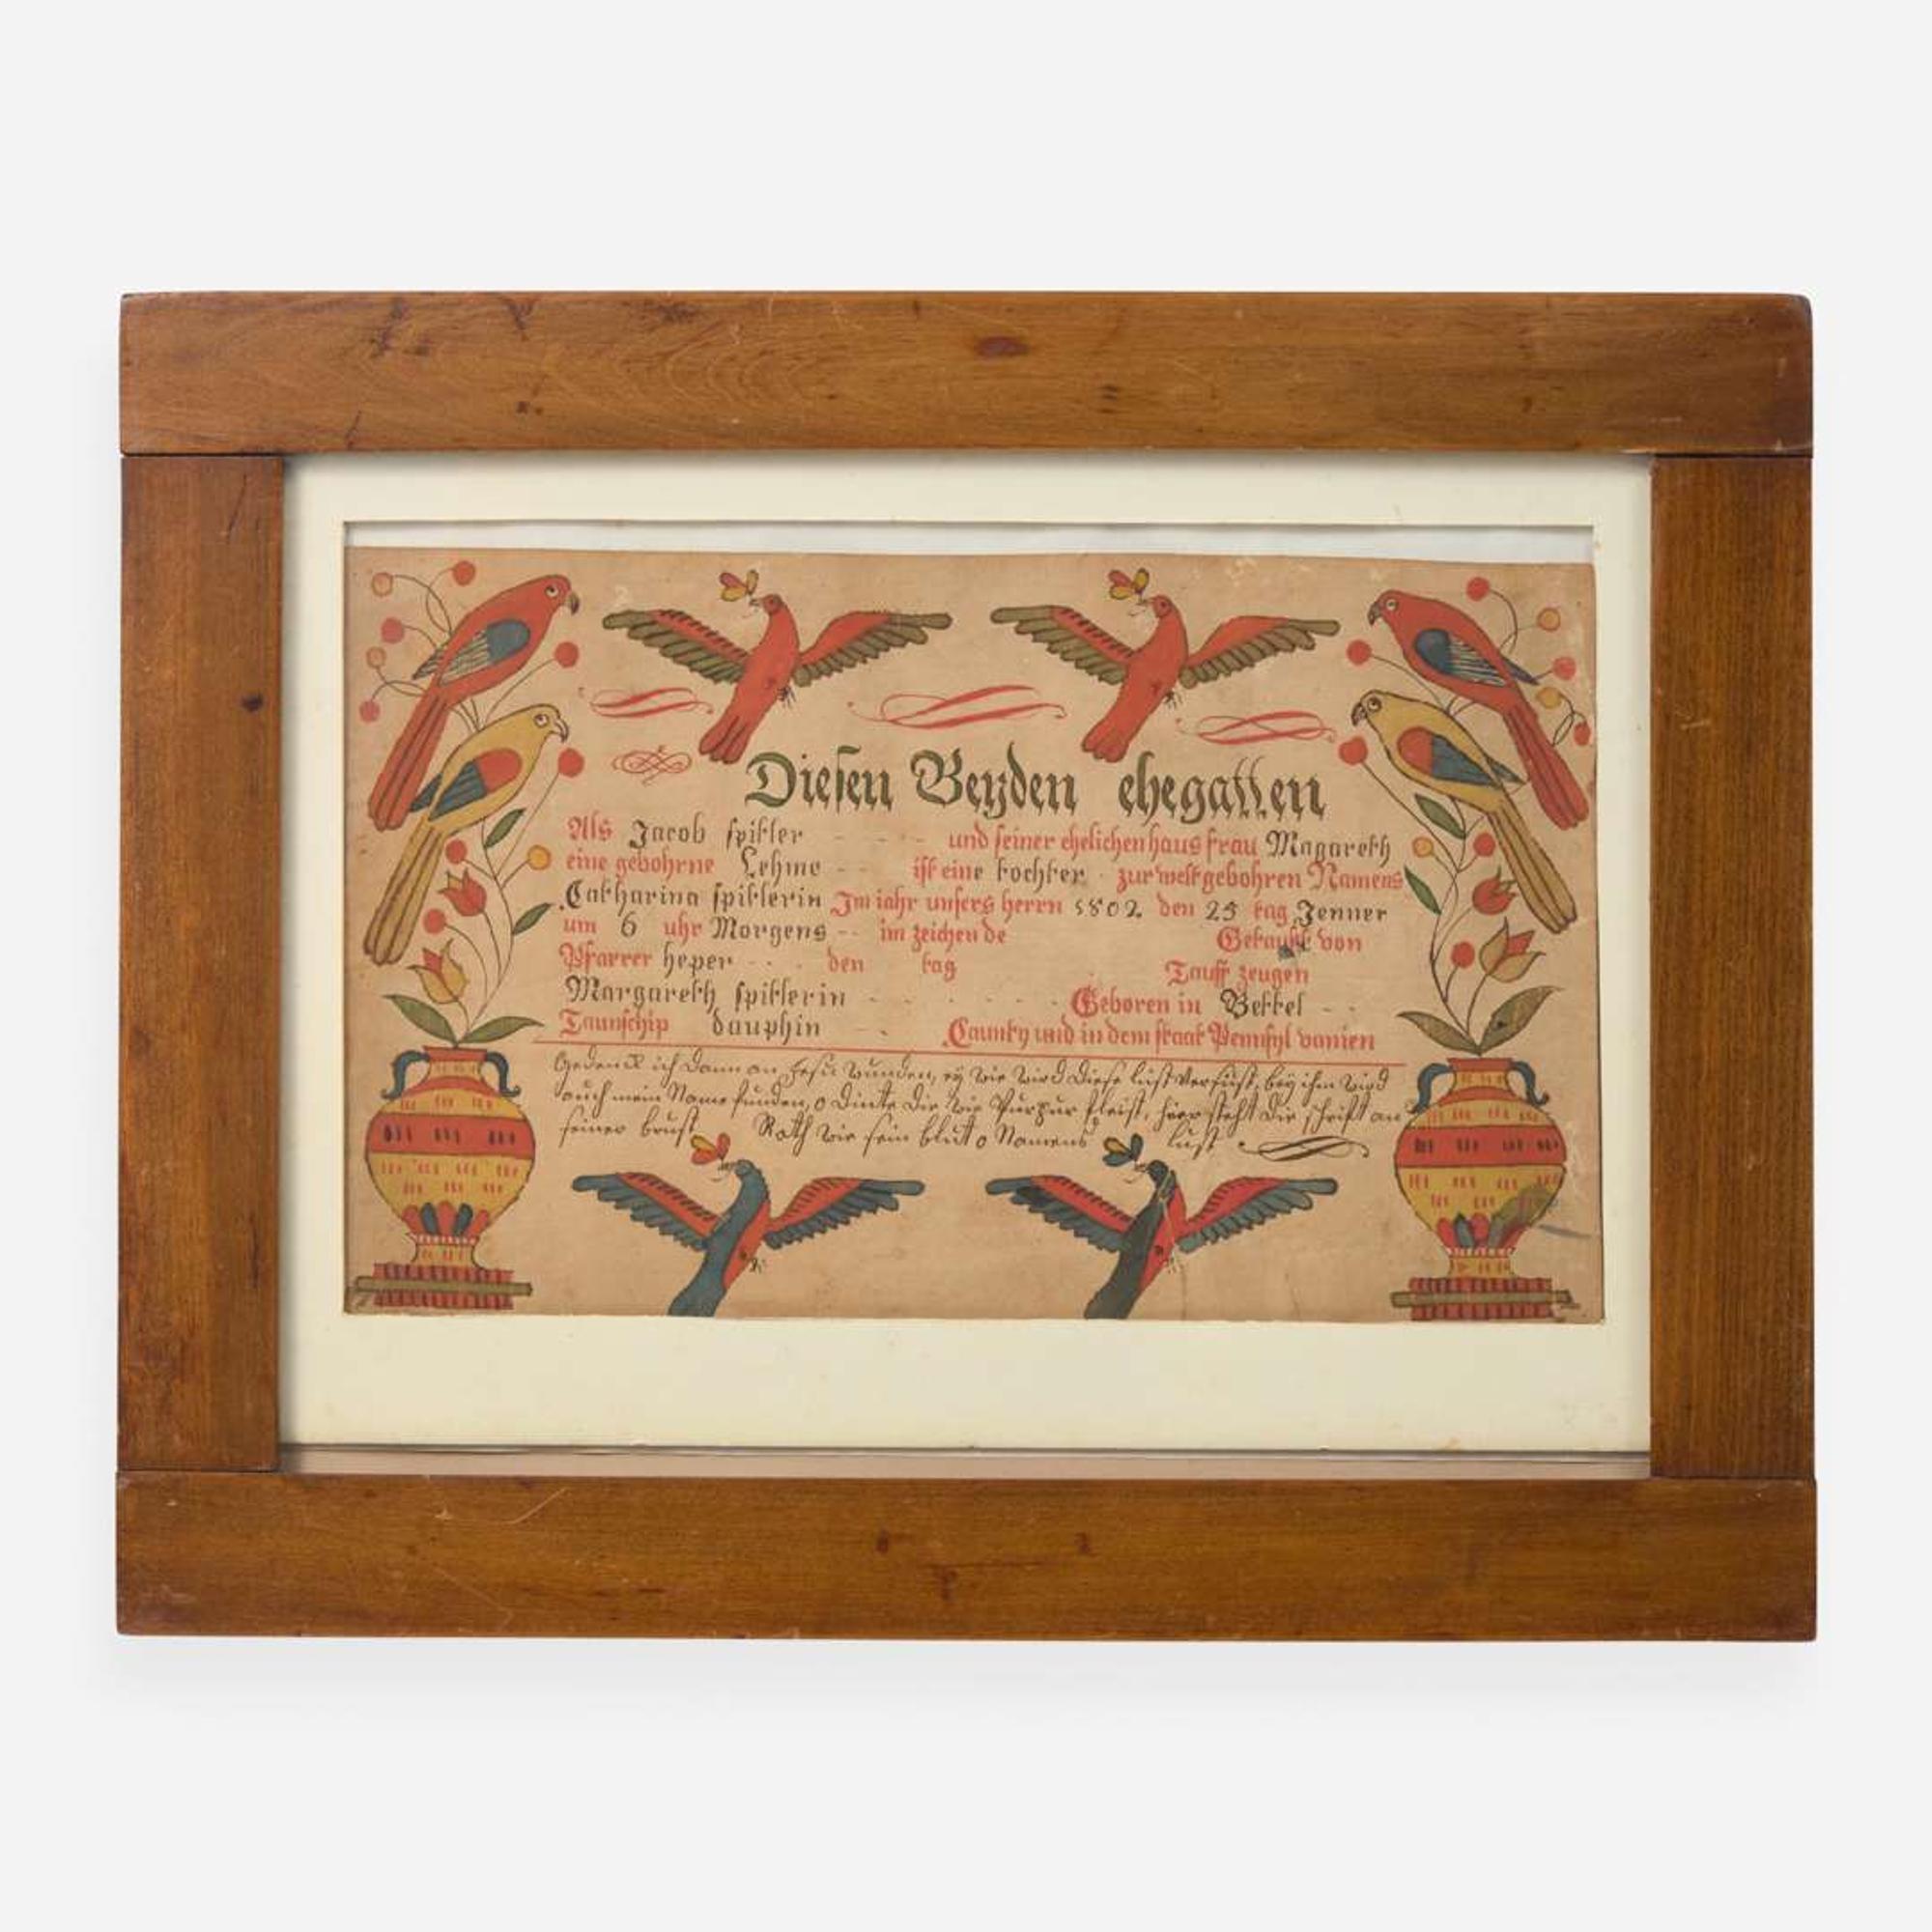 Diesen Beyden ehegatten
Als Jacob spitler und seiner ehelichen haus frau Magareth
eine gebohrne Lehme ist eine tochter zur welt gebohren Namens
Catharina spitlerin Im iahr unsers herrn 1802 den 25 tag Jenner
um 6 uhr Morgens im zeichen de Getauft von
Pfarrer heper den tag Tauff zeugen
Margareth spitlerin Geboren in Bettel
Taunschip dauphin Caunty und in dem staat Pennsyl vanien
Gedenck ich dann an Jesu wunden, ey wie wird diese lust versüst, bey ihm wird
auch mein Name funden, o Dinte die wie Purpur fleist, hier steht die schrift an
seiner brust Roth wie sein blut o Namens lust